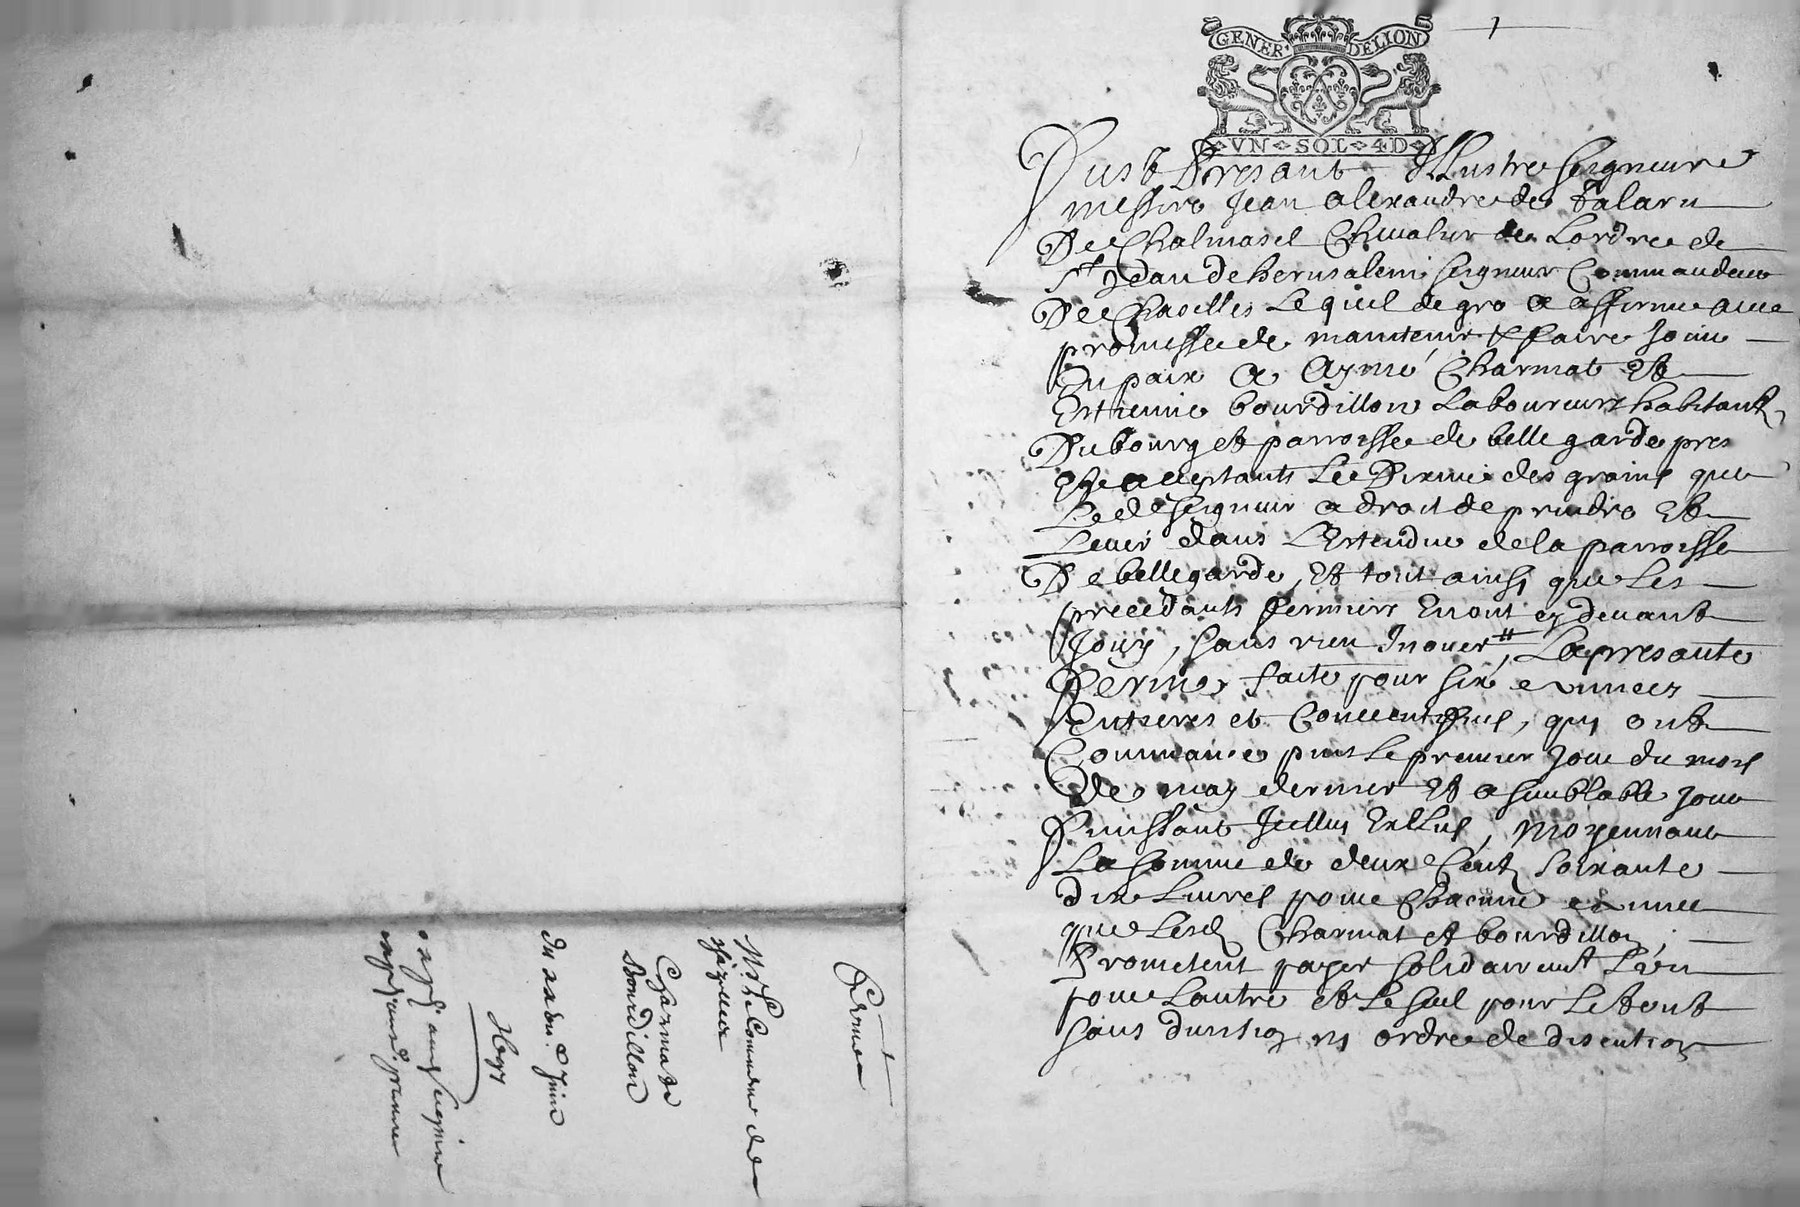 GENER. DELION
VN SOL 4D
Fust Presant Illustre Seigneur
messire Jean alexandre de talaru
De Chalmasel Chevalier de Lordre de
St Jean de herusalem seigneur Commandeur
De Chaselles Lequel de gre a affermé avec
promesse de maintenir & faire jouir
En paix a Aymé Charmat Et
Estienne bourdillon Laboureurs habitants
Du bourg et parroisse de belle garde pres
Et acceptants Le Dixme des grains que
Led. seigneur a droit de prendre Et
Lever dans L'Estendue de la parroisse
De bellegarde, Et tout ainsy que Les
precedants fermiers En ont cy devant
Jouy, sans rien Inover, La presante
ferme, faite pour six années
Entieres et Consecutifves, quy ont
Commancé puis Le premier Jour du mois
de may dernier Et a semblable Jour
finissant Icelles, moyennant
La somme de deux Cents soixante
dix Livres pour Chacune année
que Lesd. Charmat et bourdillon,
Prometent payer solidairemt L'un
pour Lautre et Le seul pour Le tout
sans division ny ordre de discution
Ferme
Mr Le Commdeur de
Chazelles
Charmat
Bourdillon
Du Juin
1697